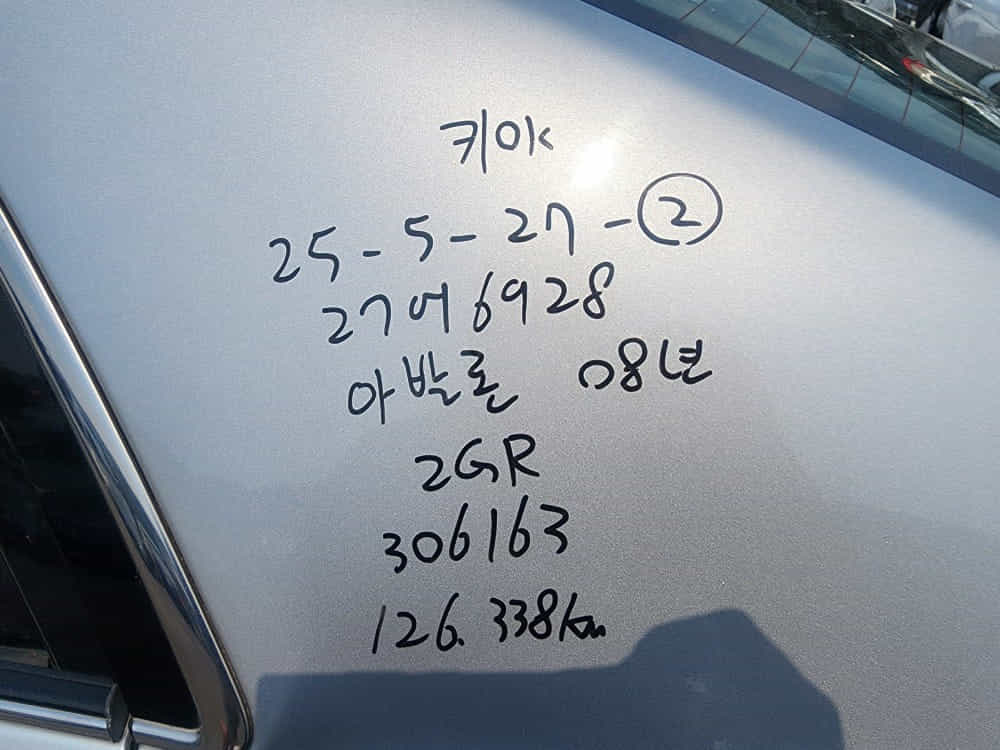 키OK
25-5-27-②
27어6928
아발론 08년
2GR
306163
126.338km